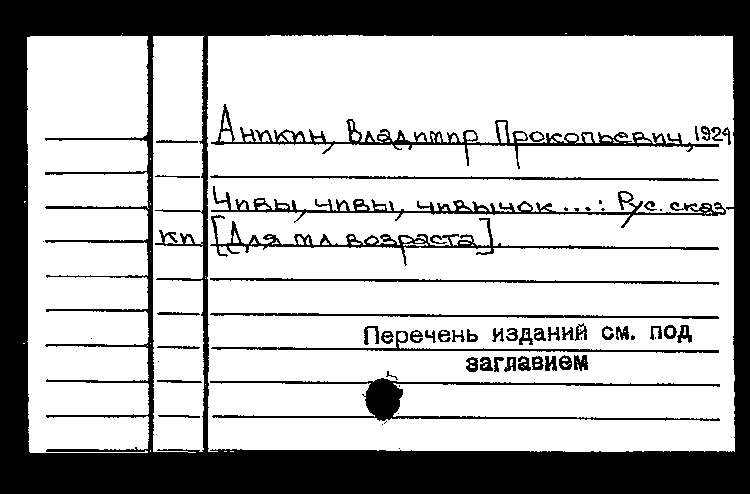 Аникин, Владимир Прокопьевич, 1924
Чивы, чивы, чивычок ...: Рус. сказ-
ки [Для мл. возраста].
Перечень изданий см. под
заглавием